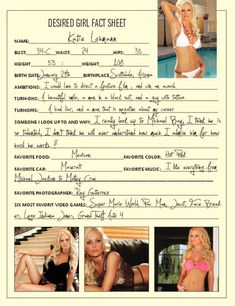 DESIRED GIRL FACT SHEET
NAME: Katie Lohmann
BUST: 34-C WAIST: 24 HIPS: 35
HEIGHT: WEIGHT: 108
BIRTH DATE: January 29th BIRTHPLACE: Scottsdale, Arizona
AMBITIONS: I would love to direct a feature film, and win an
TURN-ONS: A beautiful smile, a man in a black suit, and a guy with tattoos
TURN-OFFS: A bad liar, and a man that is negative about my career
SOMEONE I LOOK UP TO AND WHY: I really look up to Michael Bay, I think he is
so talented, I don't think he will ever understand how much I admire him for how
hard he works !!
FAVORITE FOOD: Mexican FAVORITE COLOR: Hot Pink
FAVORITE CAR: Maserati FAVORITE MUSIC: I like everything from
Michael Jackson to Motley Crue
FAVORITE PHOTOGRAPHER: Ray Gutierrez
SIX MOST FAVORITE VIDEO GAMES: Super Mario World, Pac Man,
Lego Indiana Jones, Grand Theft Auto 4